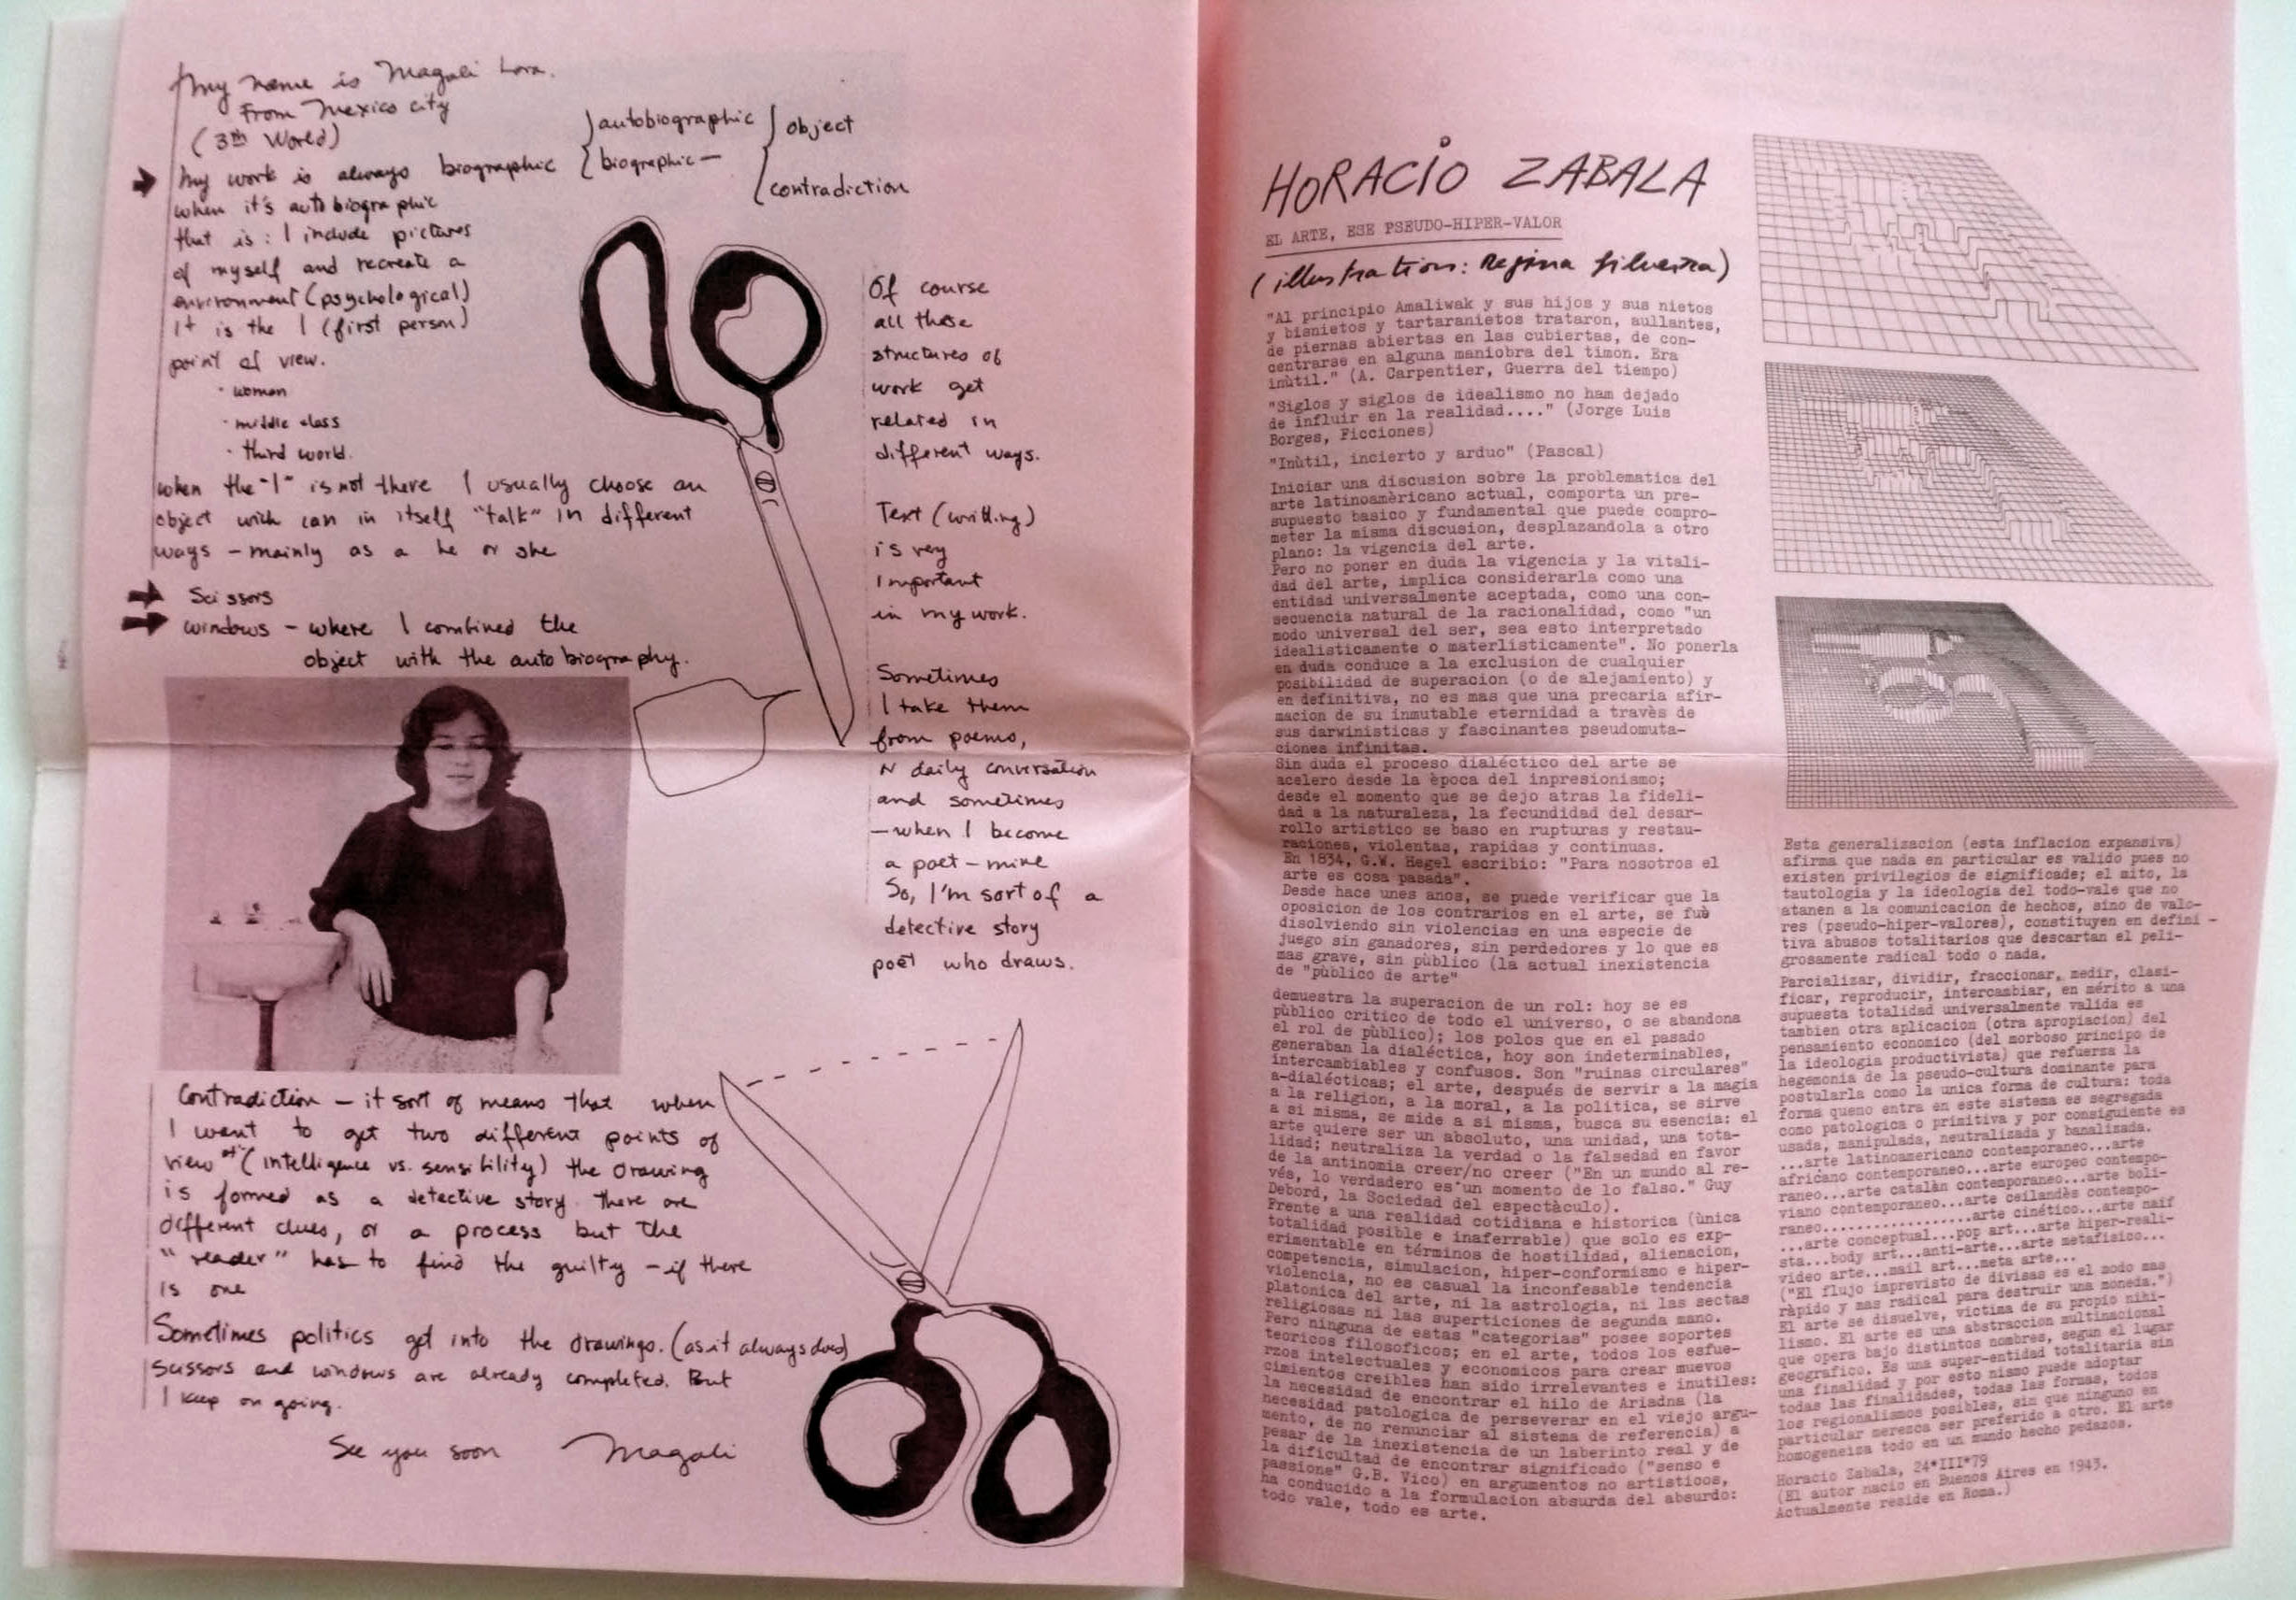 My name is Magali Lara.
From Mexico city
(3th World)
My work is always biographic
autobiographic
biographic—
object
contradiction
when it's autobiographic
that is: I include pictures
of myself and recreate a
environment (psychological)
It is the I (first person)
point of view.
· woman
· middle class
· third world.
when the "I" is not there I usually choose an
object wich can in itself "talk" in different
ways – mainly as a he or she
Scissors
windows – where I combined the
object with the autobiography.
Of course
all these
structures of
work get
related in
different ways.
Text (writting)
is very
Important
in my work.
Sometimes
I take them
from poems,
daily conversation
and sometimes
—when I become
a poet – mine
So, I'm sort of a
detective story
poet who draws.
Contradiction – it sort of means that when
I want to get two different points of
view of (intelligence vs. sensibility) the drawing
is formed as a detective story. there are
different clues, or a process but the
"reader" has to find the guilty – if there
is one
Sometimes politics get into the drawings. (as it always does)
Scissors and windows are already completed. But
I keep on going.
See you soon Magali
HORACIO ZABALA
EL ARTE, ESE PSEUDO-HIPER-VALOR
(illustration: Regina Silveira)
"Al principio Amaliwak y sus hijos y sus nietos
y bisnietos y tartaranietos trataron, aullantes,
de piernas abiertas en las cubiertas, de con-
centrarse en alguna maniobra del timon. Era
inùtil." (A. Carpentier, Guerra del tiempo)
"Siglos y siglos de idealismo no han dejado
de influir en la realidad...." (Jorge Luis
Borges, Ficciones)
"Inùtil, incierto y arduo" (Pascal)
Iniciar una discusion sobre la problematica del
arte latinoamèricano actual, comporta un pre-
supuesto basico y fundamental que puede compro-
meter la misma discusion, desplazandola a otro
plano: la vigencia del arte.
Pero no poner en duda la vigencia y la vitali-
dad del arte, implica considerarla como una
entidad universalmente aceptada, como una con-
secuencia natural de la racionalidad, como "un
modo universal del ser, sea esto interpretado
idealisticamente o materlisticamente". No ponerla
en duda conduce a la exclusion de cualquier
posibilidad de superacion (o de alejamiento) y
en definitiva, no es mas que una precaria afir-
macion de su inmutable eternidad a travès de
sus darwinisticas y fascinantes pseudomuta-
ciones infinitas.
Sin duda el proceso dialéctico del arte se
acelero desde la època del inpresionismo;
desde el momento que se dejo atras la fideli-
dad a la naturaleza, la fecundidad del desar-
rollo artistico se baso en rupturas y restau-
raciones, violentas, rapidas y continuas.
En 1834, G.W. Hegel escribio: "Para nosotros el
arte es cosa pasada".
Desde hace unes anos, se puede verificar que la
oposicion de los contrarios en el arte, se fuè
disolviendo sin violencias en una especie de
juego sin ganadores, sin perdedores y lo que es
mas grave, sin pùblico (la actual inexistencia
de "pùblico de arte"
demuestra la superacion de un rol: hoy se es
pùblico critico de todo el universo, o se abandona
el rol de pùblico); los polos que en el pasado
generaban la dialéctica, hoy son indeterminables,
intercambiables y confusos. Son "ruinas circulares"
a-dialécticas; el arte, después de servir a la magia
a la religion, a la moral, a la politica, se sirve
a si misma, se mide a si misma, busca su esencia: el
arte quiere ser un absoluto, una unidad, una tota-
lidad; neutraliza la verdad o la falsedad en favor
de la antinomia creer/no creer ("En un mundo al re-
vés, lo verdadero es un momento de lo falso." Guy
Debord, la Sociedad del espectàculo).
Frente a una realidad cotidiana e historica (ùnica
totalidad posible e inaferrable) que solo es exp-
erimentable en términos de hostilidad, alienacion,
competencia, simulacion, hiper-conformismo e hiper-
violencia, no es casual la inconfesable tendencia
platonica del arte, ni la astrologia, ni las sectas
religiosas ni las supersticiones de segunda mano.
Pero ninguna de estas "categorias" posee soportes
teoricos filosoficos; en el arte, todos los esfue-
rzos intelectuales y economicos para crear muevos
cimientos creibles han sido irrelevantes e inutiles:
la necesidad de encontrar el hilo de Ariadna (la
necesidad patologica de perseverar en el viejo argu-
mento, de no renunciar al sistema de referencia) a
pesar de la inexistencia de un laberinto real y de
la dificultad de encontrar significado ("senso e
passione" G.B. Vico) en argumentos no artisticos,
ha conducido a la formulacion absurda del absurdo:
todo vale, todo es arte.
Esta generalizacion (esta inflacion expansiva)
afirma que nada en particular es valido pues no
existen privilegios de significade; el mito, la
tautologia y la ideologia del todo-vale que no
atanen a la comunicacion de hechos, sino de valo-
res (pseudo-hiper-valores), constituyen en defini -
tiva abusos totalitarios que descartan el peli-
grosamente radical todo o nada.
Parcializar, dividir, fraccionar, medir, clasi-
ficar, reproducir, intercambiar, en mérito a una
supuesta totalidad universalmente valida es
tambien otra aplicacion (otra apropiacion) del
pensamiento economico (del morboso principo de
la ideologia productivista) que refuerza la
hegemonia de la pseudo-cultura dominante para
postularla como la unica forma de cultura: toda
forma queno entra en este sistema es segregada
como patologica o primitiva y por consiguiente es
usada, manipulada, neutralizada y banalizada.
...arte latinoamericano contemporaneo...arte
africano contemporaneo...arte europeo contempo-
raneo...arte catalàn contemporaneo...arte boli-
viano contemporaneo...arte ceilandès contempo-
raneo.................arte cinético...arte naif
...arte conceptual...pop art...arte hiper-reali-
sta...body art...anti-arte...arte metafisico...
video arte...mail art...meta arte...
("El flujo imprevisto de divisas es el modo mas
ràpido y mas radical para destruir una moneda.")
El arte se disuelve, victima de su propio nihi-
lismo. El arte es una abstraccion multinacional
que opera bajo distintos nombres, segun el lugar
geografico. Es una super-entidad totalitaria sin
una finalidad y por esto nismo puede adoptar
todas las finalidades, todas las formas, todos
los regionalismos posibles, sin que ninguno en
particular merezca ser preferido a otro. El arte
homogeneiza todo en un mundo hecho pedazos.
Horacio Zabala, 24*III*79
(El autor nacio en Buenos Aires en 1943.
Actualmente reside en Roma.)